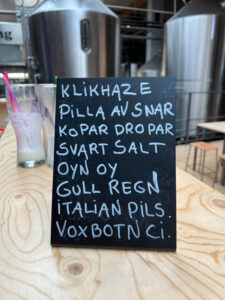 KLIKHAZE
PILLA AV SNAR
KOPAR DROPAR
SVART SALT
OYN OY
GULL REGN
ITALIAN PILS.
VOXBOTN Ci.